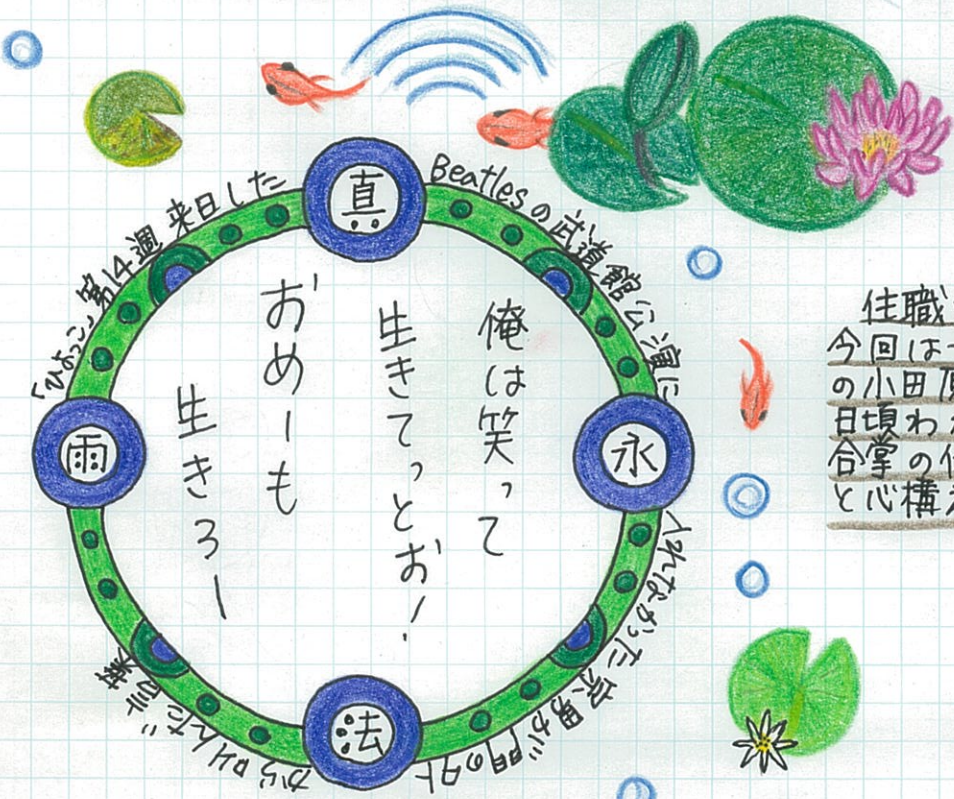 真
永
法
雨
「ひよっこ」第14週 来日した
Beatlesの武道館公演に
入れなかった宗男が門の外
から叫んだ言葉
俺は笑って
生きてっとお!
おめーも
生きろー
住職
今回は
の小田
日頃わ
合掌の
と心構